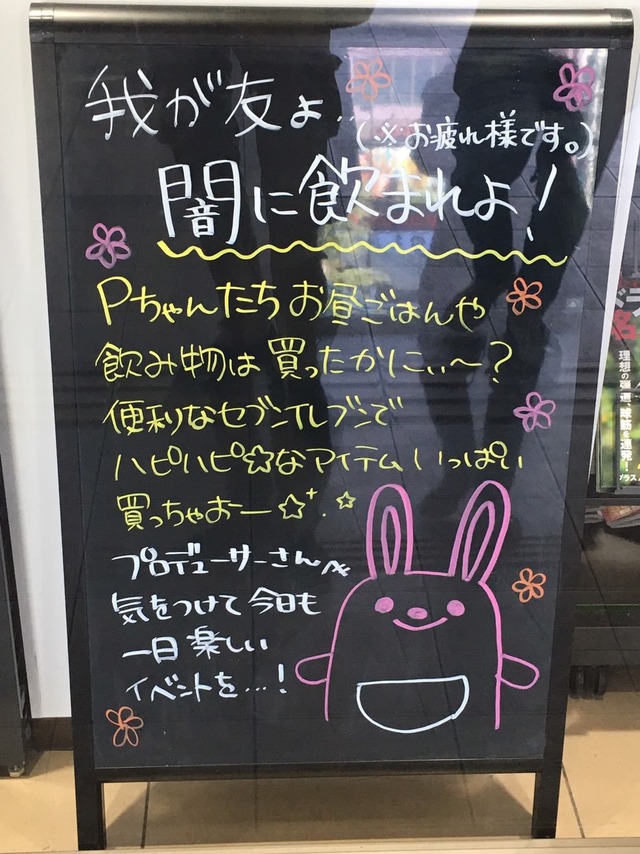 我が友よ…
(※お疲れ様です。)
闇に飲まれよ!
Pちゃんたち お昼ごはんや
飲み物は 買ったかにぃ〜?
便利なセブンイレブンで
ハピハピ☆なアイテムいっぱい
買っちゃおー☆+.☆
プロデューサーさん
気をつけて 今日も
一日 楽しい
イベントを…!
理想の弾道、球筋を連発!